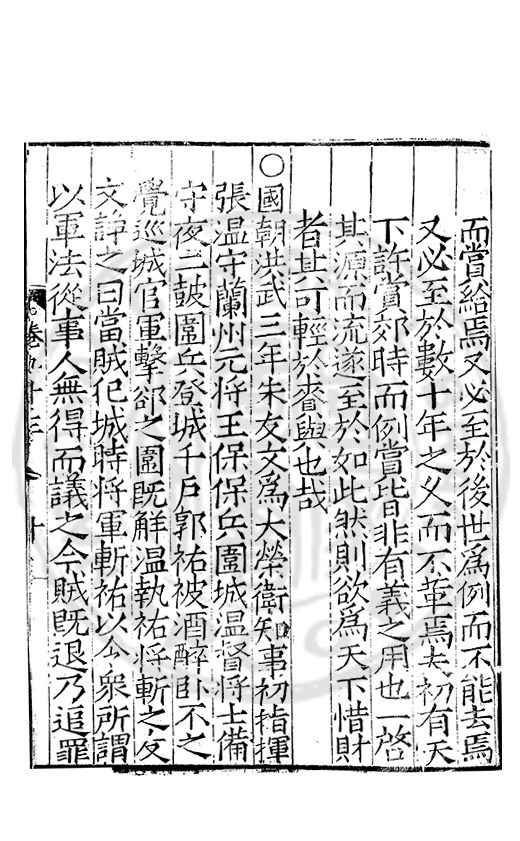 而賞給焉又必至於後世爲例而不能去焉
又必至於數十年之久而不革焉夫初有天
下許賞郊時而例賞皆非有義之用也一啓
其源而流遂至於如此然則欲爲天下惜財
者其可輕於賚與也哉
○國朝洪武三年朱友文爲大榮衛知事初指揮
張温守蘭州元将王保保兵圍城温督將士備
守夜二皷圍兵登城千戶郭祐被酒醉卧不之
覺巡城官軍擊郤之圍既解温執祐將斬之友
文諍之曰當賊犯城時将軍斬祐以令衆所謂
以軍法從事人無得而議之今賊既退乃追罪
卷九十三 十